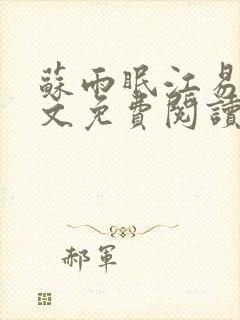 蘇雨眠江易
文免費閱讀
郝軍